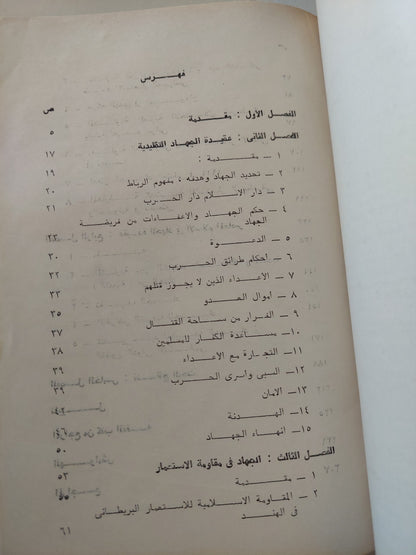 فهرس
ص
الفصل الأول : مقدمة ٥
الفصل الثانى : عقيدة الجهاد التقليدية ١٧
١ — مقدمة : ١٩
٢ — تحديد الجهاد وهدفه ، مفهوم الرباط ٢٠
٣ — دار الاسلام دار الحرب ٢١
٤ — حكم الجهاد والاعفاءات من فريضة
الجهاد ٢٣
٥ — الدعوة ٣٠
٦ — أحكام طرائق الحرب ٣٢
٧ — الاعداء الذين لا يجوز قتلهم ٣٣
٨ — أموال العدو ٣٥
٩ — الفرار من ساحة القتال ٣٧
١٠— مساعدة الكفار للمسلمين ٣٨
١١— التجارة مع الأعداء ٣٩
١٢— السبى وأسرى الحرب ٣٩
١٣— الأمان
١٤— الهدنة ٤٦
١٥ — انهاء الجهاد ٥٠
الفصل الثالث : الجهاد فى مقاومة الاستعمار ٥٣
١ — مقدمة ٥٥
٢ — المقاومة الاسلامية للاستعمار البريطانى
فى الهند ٦١